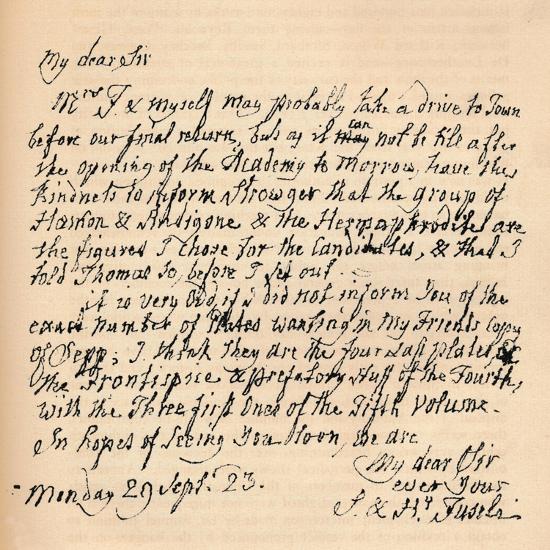 My dear Sir
Mrs F. & myself may probably take a drive to Town
before our final return, but as it can not be till after
the opening of the Academy to Morrow, have the
Kindness to inform Strowger that the group of
Hæmon & Antigone & the Hermaphrodite are
the figures I chose for the Candidates, & that I
told Thomas so, before I set out.
it is very odd, if I did not inform You of the
exact number of Plates wanting in My Friends Copy
of Sepp; I think they are the four Last plates, &
the Frontispice & prefatory stuff of the Fourth,
with the Three first Ones of the Fifth Volume.
In hopes of Seeing You Soon, we are
My dear Sir
ever Your
S. & Hy Fuseli
Monday 29 Sept. 23.